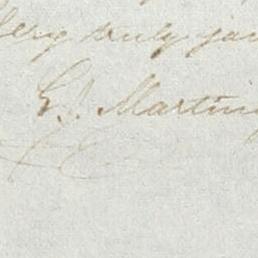 Very truly you
G. J. Martin